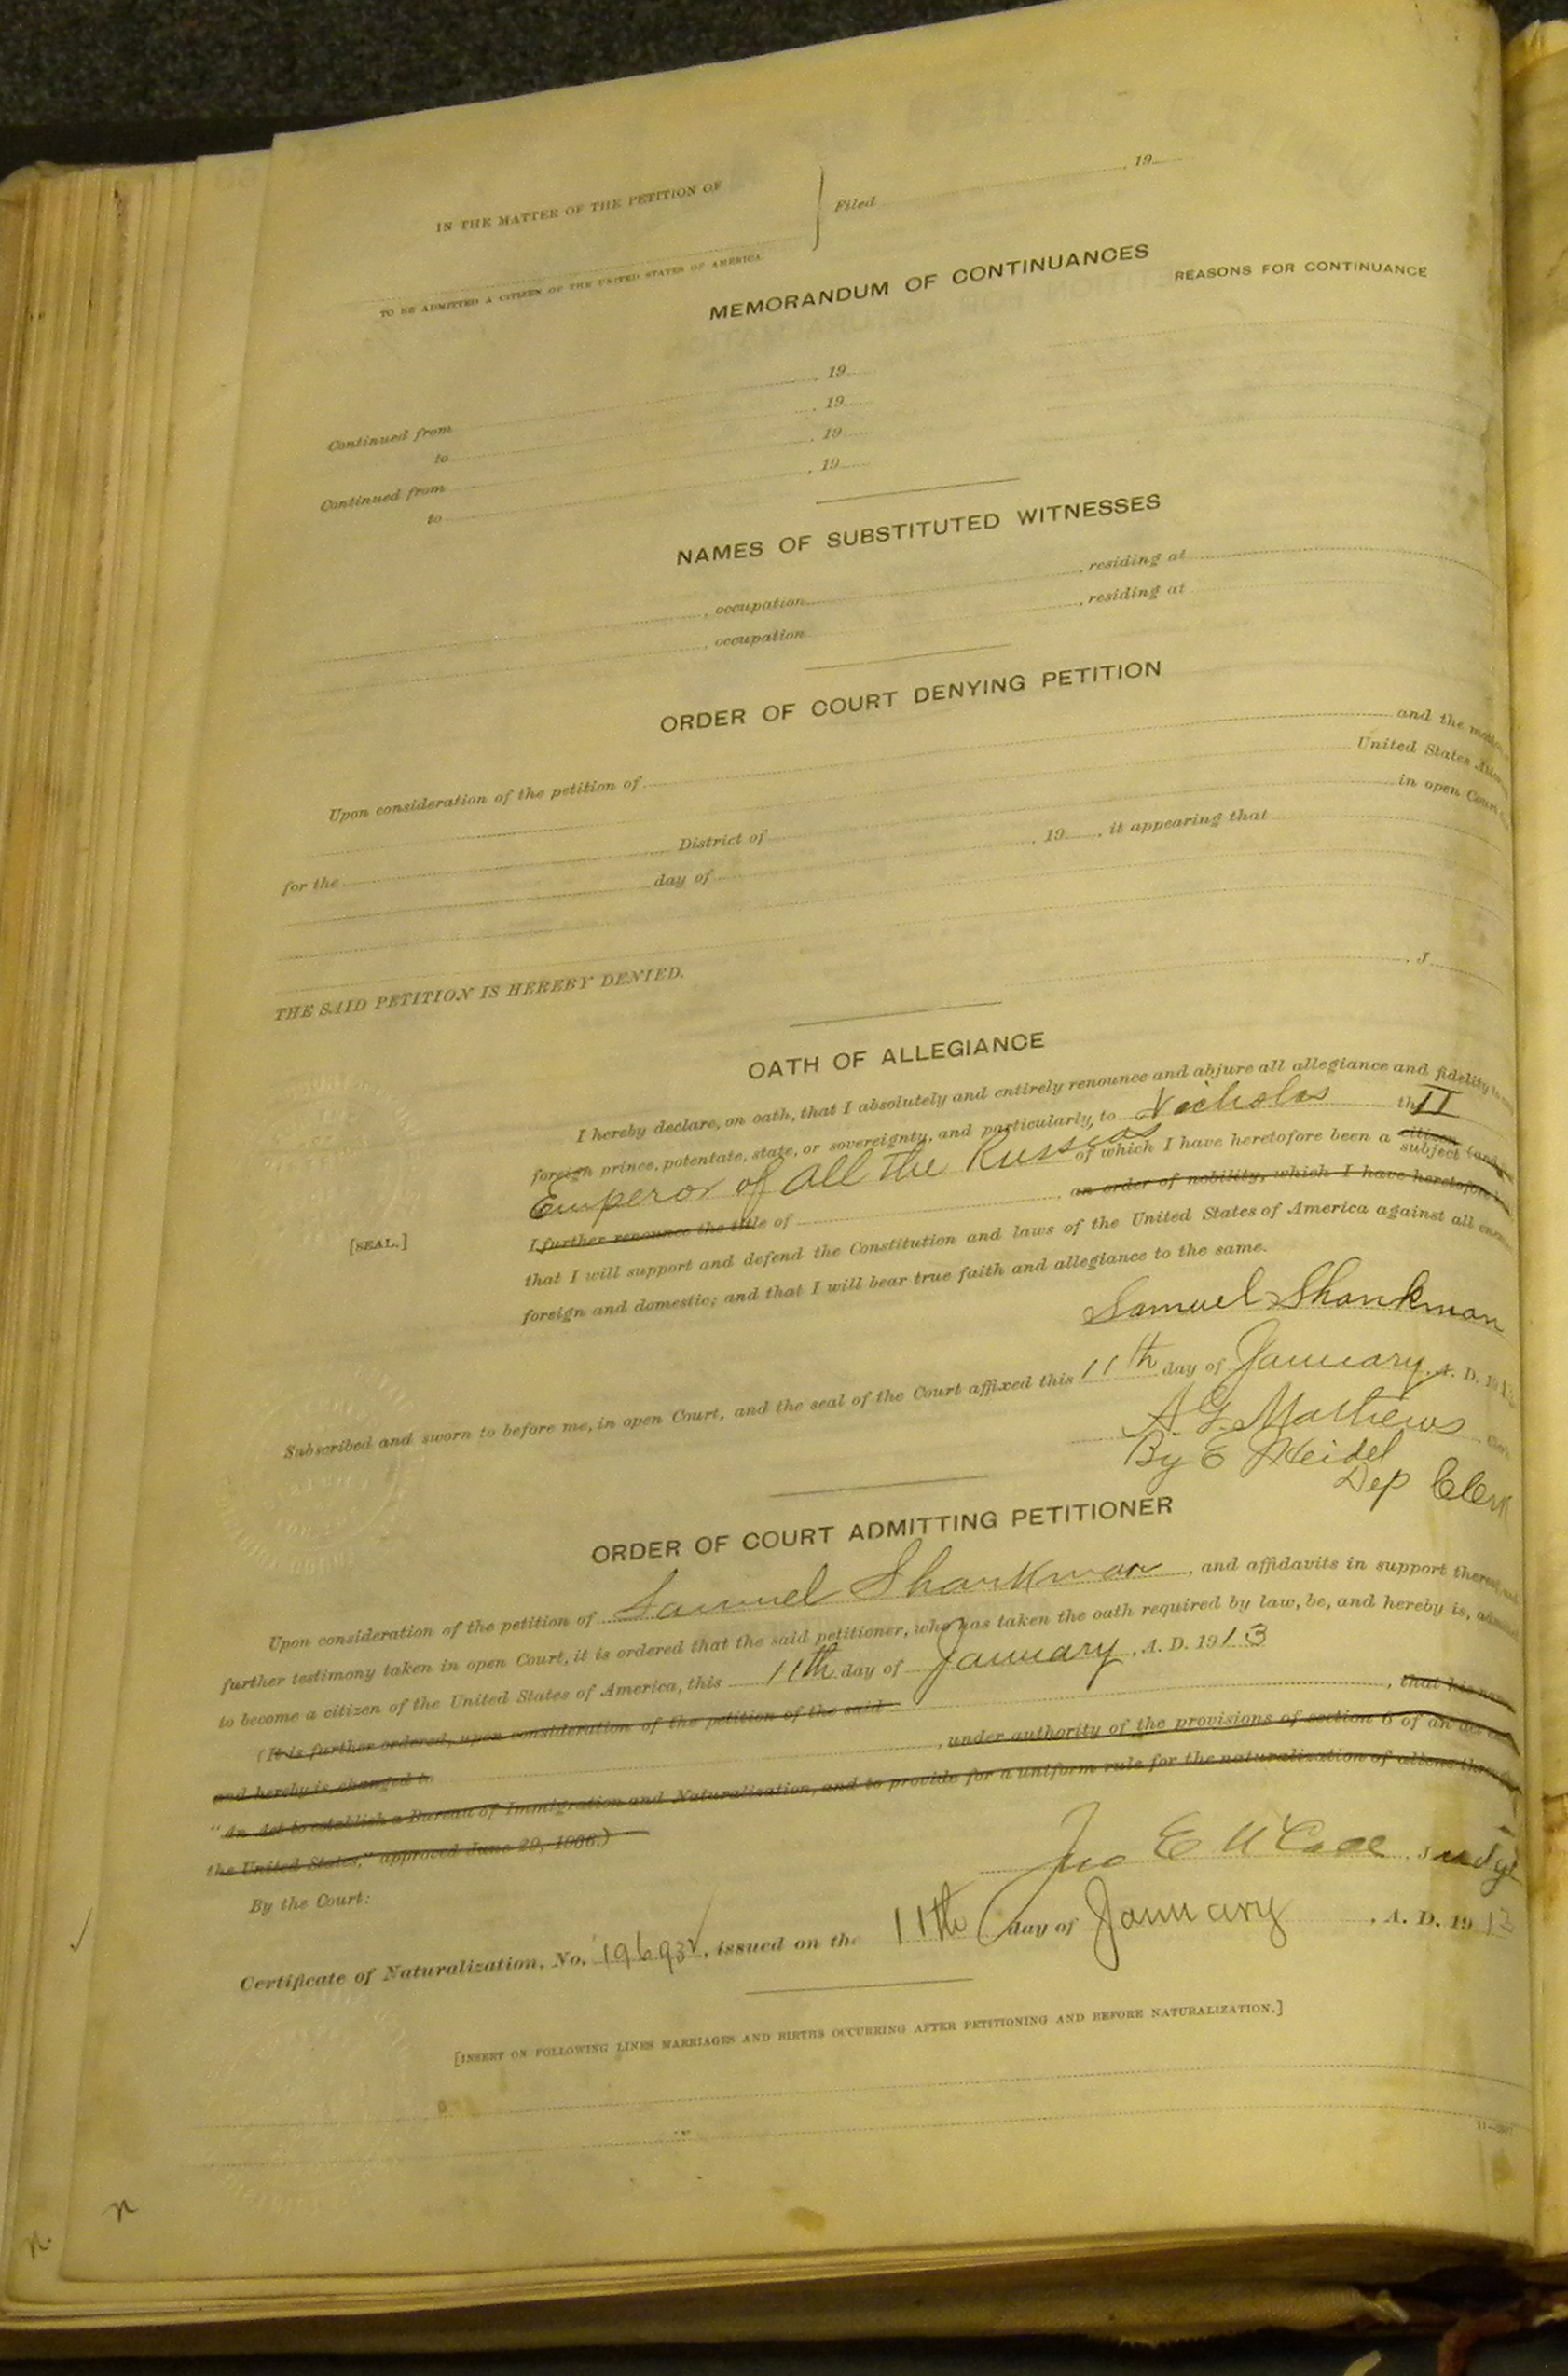 IN THE MATTER OF THE PETITION OF
Filed , 19
TO BE ADMITTED A CITIZEN OF THE UNITED STATES OF AMERICA.
MEMORANDUM OF CONTINUANCES
REASONS FOR CONTINUANCE
Continued from , 19
to , 19
Continued from , 19
to , 19
NAMES OF SUBSTITUTED WITNESSES
, occupation , residing at
, occupation , residing at
ORDER OF COURT DENYING PETITION
Upon consideration of the petition of and the
for the District of United States
day of in open Court
, 19 , it appearing that
THE SAID PETITION IS HEREBY DENIED.
, J
OATH OF ALLEGIANCE
I hereby declare, on oath, that I absolutely and entirely renounce and abjure all allegiance and fidelity to
foreign prince, potentate, state, or sovereignty, and particularly to Nicholas th II
Emperor of all the Russias of which I have heretofore been a citizen subject (and
I further renounce the title of , an order of nobility, which I have heretofore
that I will support and defend the Constitution and laws of the United States of America against all
foreign and domestic; and that I will bear true faith and allegiance to the same.
[SEAL.]
Samuel Shankman
Subscribed and sworn to before me, in open Court, and the seal of the Court affixed this 11th day of January, A. D. 19
A. G. Mathews
By E Weidel
Dep Clerk
ORDER OF COURT ADMITTING PETITIONER
Upon consideration of the petition of Samuel Shankman , and affidavits in support
further testimony taken in open Court, it is ordered that the said petitioner, who has taken the oath required by law, be, and hereby is,
to become a citizen of the United States of America, this 11th day of January , A. D. 1913
(It is further ordered, upon consideration of the petition of the said , that his
and hereby is, changed to , under authority of the provisions of section 6 of an act
"An Act to establish a Bureau of Immigration and Naturalization, and to provide for a uniform rule for the naturalization of aliens
the United States," approved June 29, 1906.)
By the Court:
Jno E McCall Judge
Certificate of Naturalization, No. 19693 , issued on the 11th day of January , A. D. 1913
[INSERT ON FOLLOWING LINES MARRIAGES AND BIRTHS OCCURRING AFTER PETITIONING AND BEFORE NATURALIZATION.]
n
n.